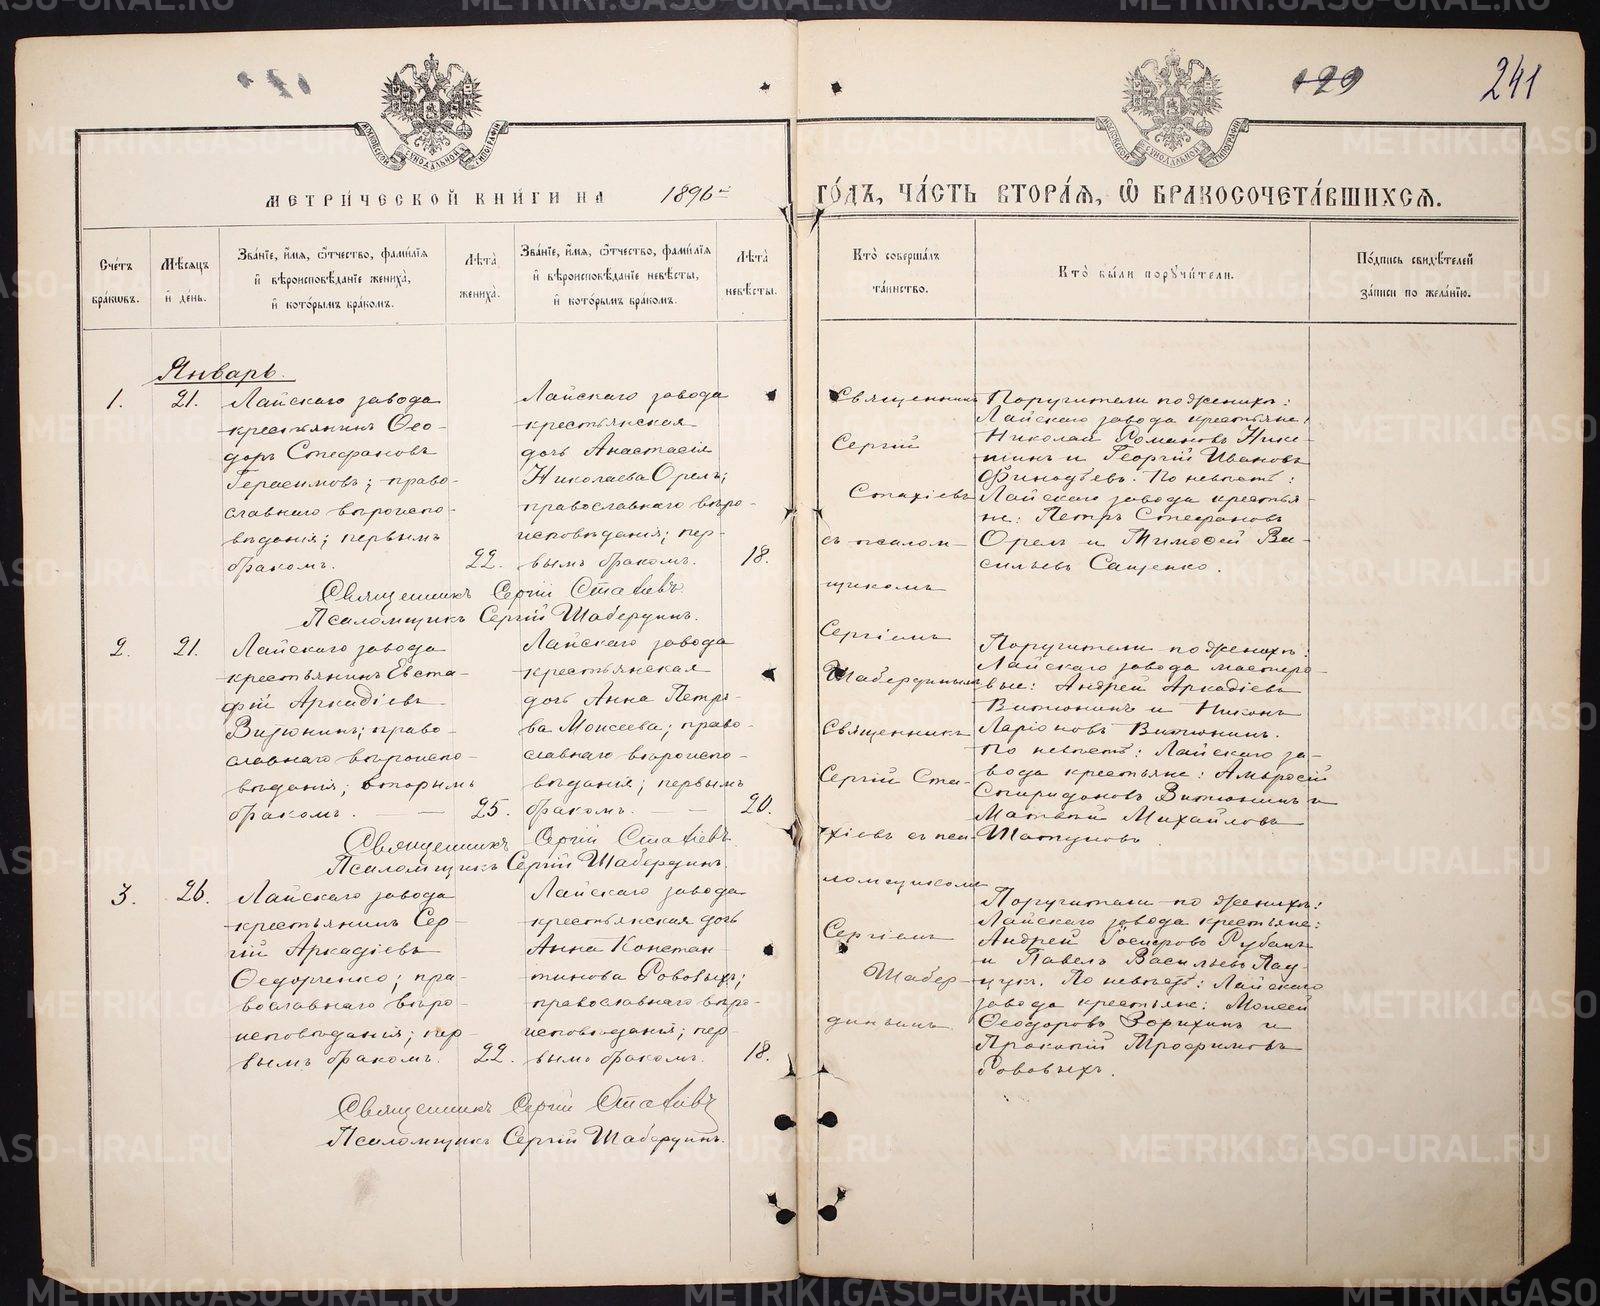 129
241
МЕТРИ́ЧЕСКОЙ КНИ́ГИ НА 1896й ГО́ДЪ, ЧА́СТЬ ВТОРА́Ѧ, Ѽ БРАКОСОЧЕТА́ВШИХСѦ.
Сче́тъ бра́кѡвъ.
Мѣ́сѧцъ и҆ де́нь.
Зва́нїе, и҆́мѧ, ѻ҆́тчество, фами́лїѧ и҆ вѣроисповѣ́данїе жениха̀, и҆ кото́рымъ бра́комъ.
Лѣ́та жениха̀.
Зва́нїе, и҆́мѧ, ѻ҆́тчество, фами́лїѧ и҆ вѣроисповѣ́данїе невѣ́сты, и҆ кото́рымъ бра́комъ.
Лѣ́та невѣ́сты.
Кто̀ соверша́лъ та́инство.
Кто̀ бы́ли порꙋчи́тели.
По́дпись свидѣ́телей за́писи по жела́нїю.
Январь.
1.
21.
Лайскаго завода
крестьянинъ Ѳео-
доръ Стефановъ
Герасимовъ; право-
славнаго вѣроиспо-
вѣданія; первымъ
бракомъ.
22.
Лайскаго завода
крестьянская
дочь Анастасія
Николаева Орелъ;
православнаго вѣро-
исповѣданія; пер-
вымъ бракомъ.
18.
Священникъ
Сергій
Стахіевъ
съ псалом-
щикомъ
Сергіемъ
Шабердинымъ
Поручители по женихѣ:
Лайскаго завода крестьяне:
Николай Романовъ Ники-
тинъ и Георгій Ивановъ
По невѣстѣ:
Лайскаго завода крестья-
не: Петръ Стефановъ
Орелъ и Тимоѳей Ва-
сильевъ Саценко.
Священникъ Сергій Стахіевъ
Псаломщикъ Сергій Шабердинъ.
2.
21.
Лайскаго завода
крестьянинъ Евста-
фій Аркадіевъ
Витюнинъ; право-
славнаго вѣроиспо-
вѣданія; вторымъ
бракомъ.
25.
Лайскаго завода
крестьянская
дочь Анна Петро-
ва Моисеева; право-
славнаго вѣроиспо-
вѣданія; первымъ
бракомъ.
20.
Священникъ
Сергій Ста-
хіевъ съ пса-
ломщикомъ
Сергіемъ
Шабер-
динымъ
Поручители по женихѣ:
Лайскаго завода мастеро-
вые: Андрей Аркадіевъ
Витюнинъ и Никонъ
Ларіоновъ Витюнинъ.
По невѣстѣ: Лайскаго за-
вода крестьяне: Амвросій
Спиридоновъ Витюнинъ и
Матвѣй Михайловъ
Шатуновъ.
Священникъ Сергій Стахіевъ
Псаломщикъ Сергій Шабердинъ.
3.
26.
Лайскаго завода
крестьянинъ Сер-
гій Аркадіевъ
Ѳедорченко; пра-
вославнаго вѣро-
исповѣданія; пер-
вымъ бракомъ.
22.
Лайскаго завода
крестьянская дочь
Анна Констан-
тинова Рововыхъ;
православнаго вѣро-
исповѣданія; пер-
вымъ бракомъ.
18.
Поручители по женихѣ:
Лайскаго завода крестьяне:
Андрей Рубанъ
и Павелъ Васильевъ
По невѣстѣ: Лайскаго
завода крестьяне: Моисей
Ѳеодоровъ Зорихинъ и
Прокопій Трофимовъ
Рововыхъ.
Священникъ Сергій Стахіевъ
Псаломщикъ Сергій Шабердинъ.
METRIKI.GASO-URAL.RU